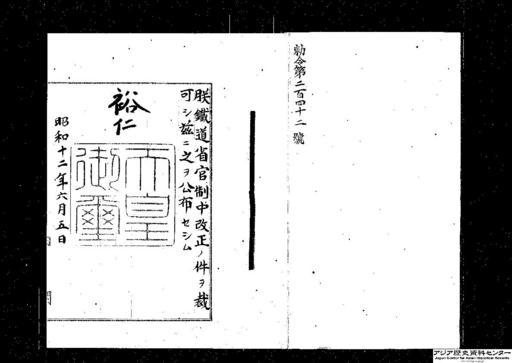 勅令第二百四十二號
朕鐵道省官制中改正ノ件ヲ裁
可シ茲ニ之ヲ公布セシム
裕仁
天皇
御璽
昭和十二年六月五日
アジア歴史資料センター
Japan Center for Asian Historical Records